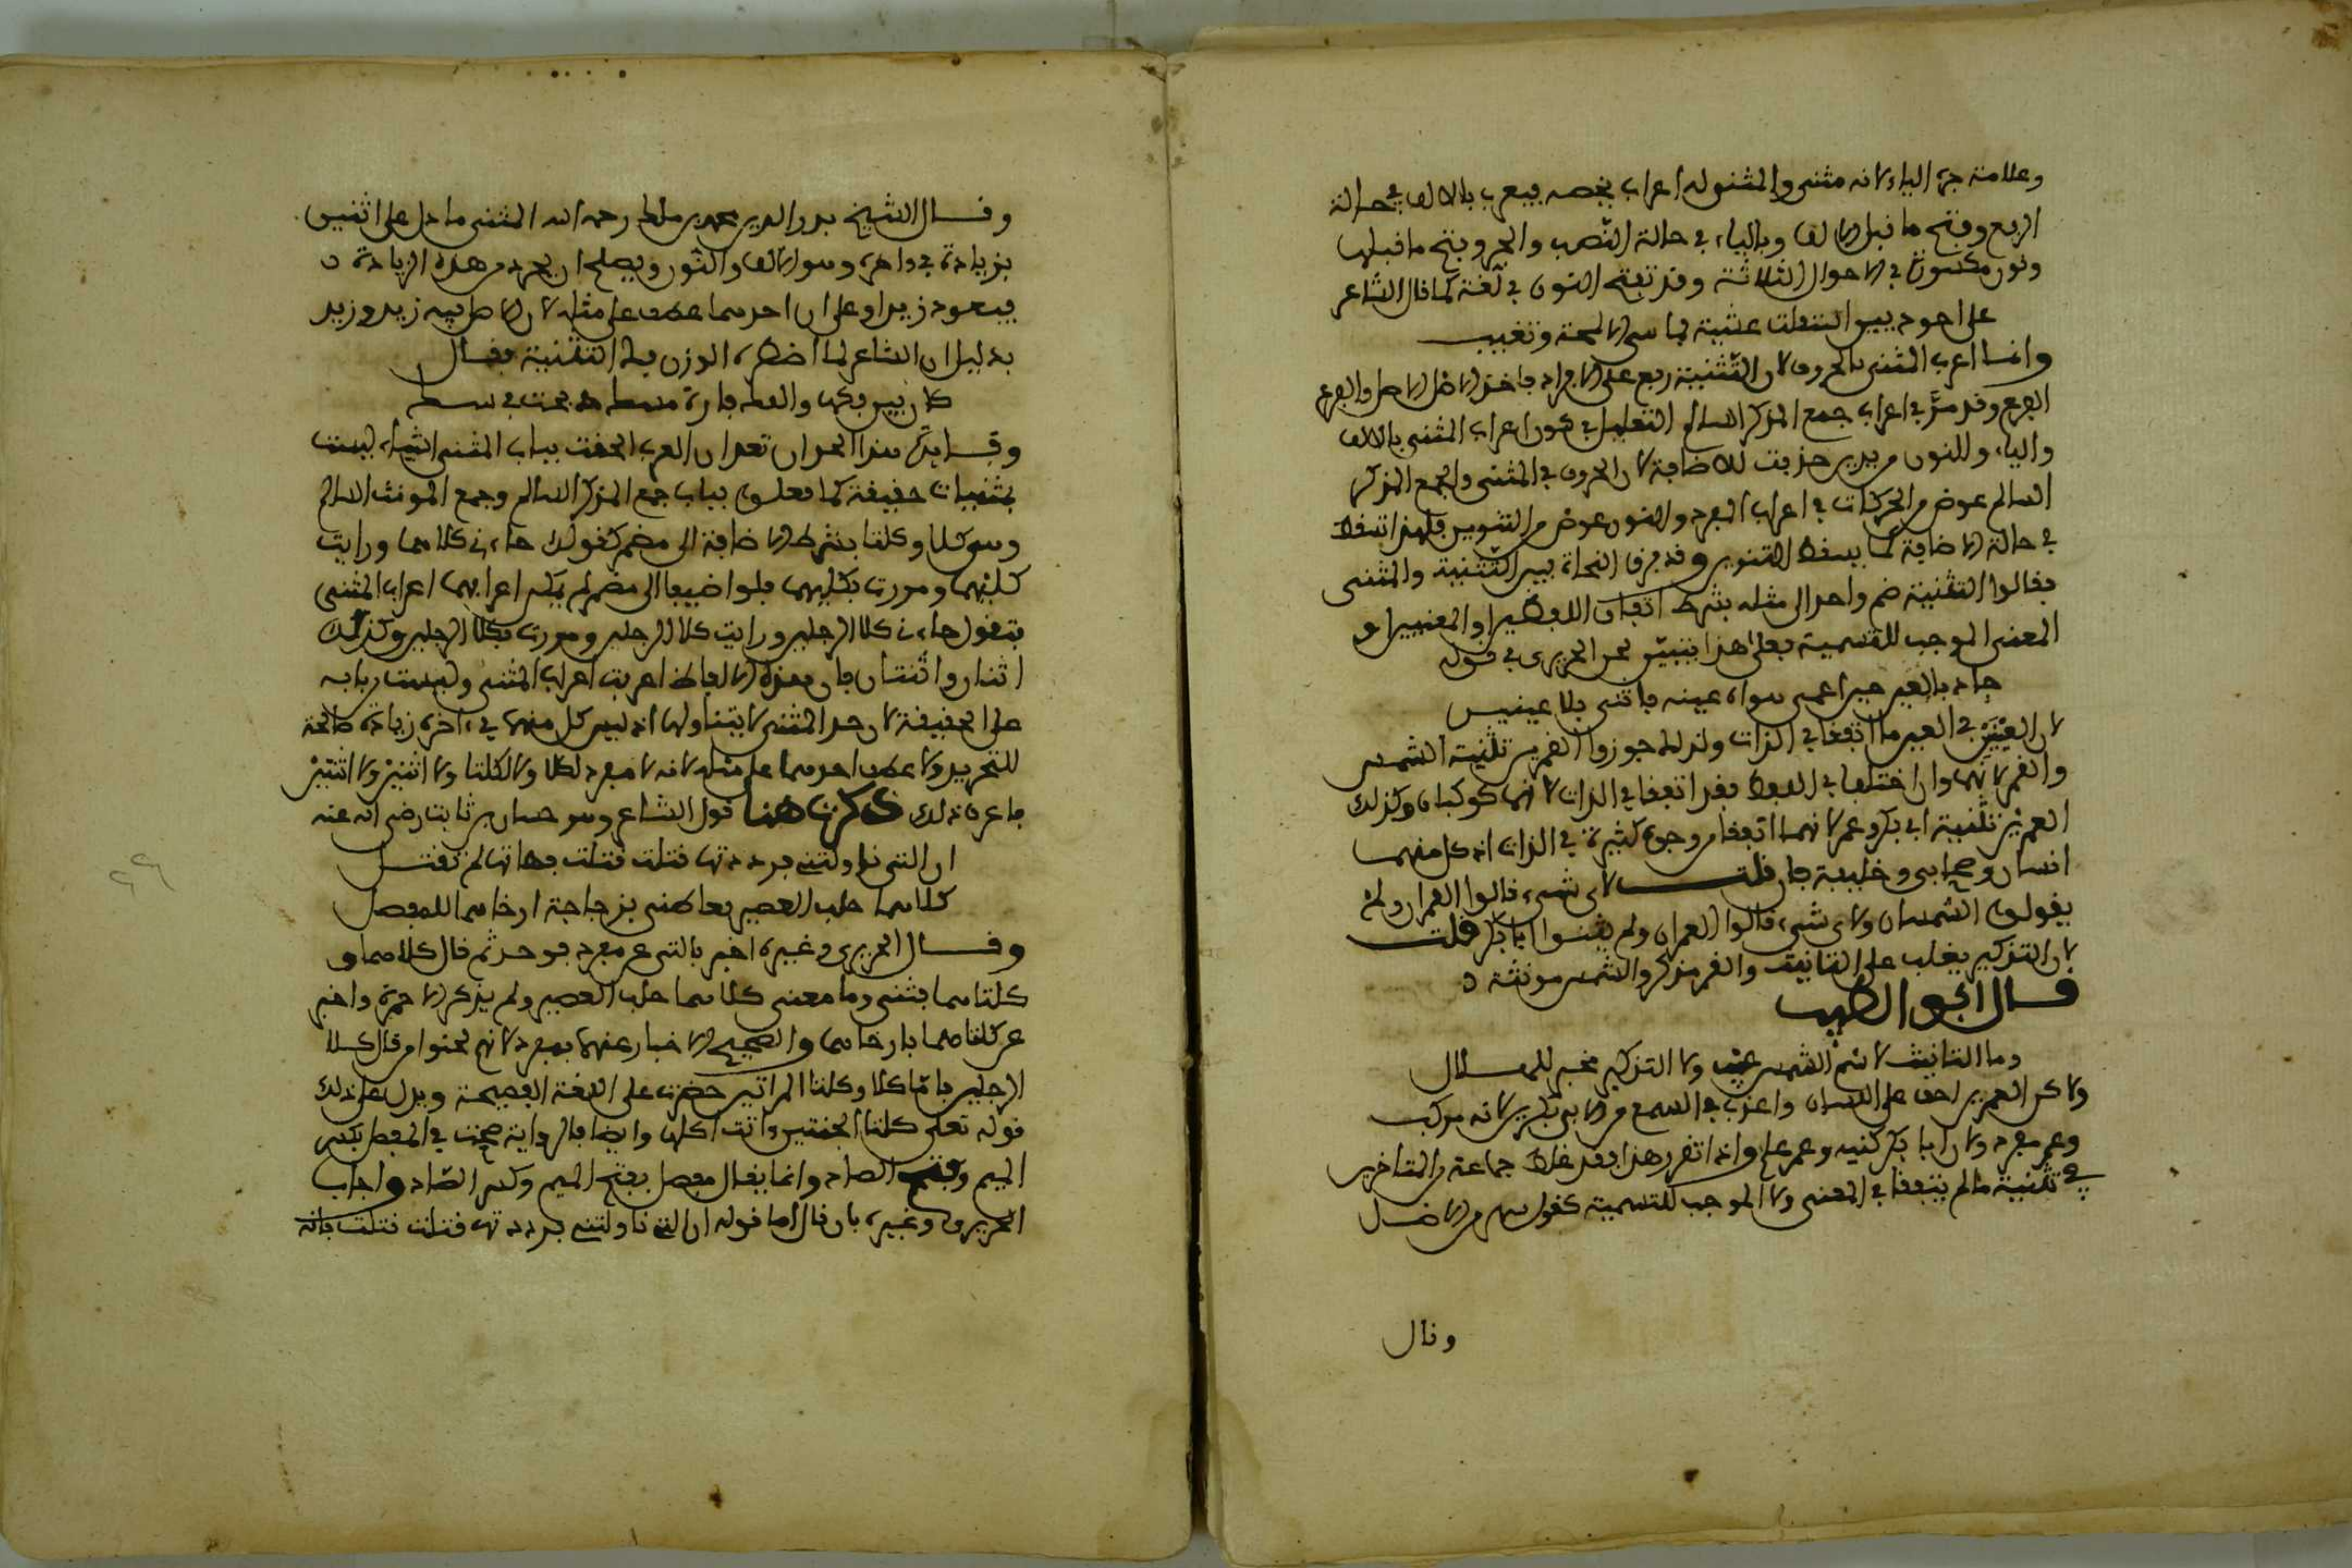 وعلامة جره الياء لانه مثنى والمثنى له اعراب يخصه فيعرب بالالف في حالة
الرفع وفتح ما قبل الالف وبالياء في حالة النصب والجر وفتح ما قبلها
ونون مكسورة في الاحوال الثلاثة وقد تفتح النون في لغة كما قال الشاعر
على احوذيين استقلت عشية فما هي الا لمحة وتغيب
وانما اعرب المثنى بالحروف لان التثنية فرع على الافراد فاخذ الاصل الاصل والفرع
الفرع وقد مر في اعراب جمع المذكر السالم التعليل في كون اعراب المثنى بالالف
والياء وللنون مزيد حذفت للاضافة لان الحروف في المثنى والجمع المذكر
السالم عوض من الحركات في اعراب المفرد والنون عوض من التنوين فلهذا تسقط
في حالة الاضافة كما يسقط التنوين وقد فرق النحاة بين التثنية والمثنى
فقالوا التثنية ضم واحد الى مثله بشرط اتفاق اللفظين او المعنيين او
المعنى الموجب للتسمية فعلى هذا يتبين لحن الحريري في قوله
جاد بالعين حين اعمى هواه عينه فانثنى بلا عينين
لان العينين في العين ما اتفقا في الذات ولذلك جوزوا القمرين تثنية الشمس
والقمر لانهما وان اختلفا في اللفظ فقد اتفقا في الذات لانهما كوكبان وكذلك
العمرين تثنية ابي بكر وعمر لانهما اتفقا من وجوه كثيرة في الذات اذ كل منهما
انسان وصحابي وخليفة فان قلت لاي شيء قالوا القمران ولم
يقولون الشمسان ولاي شيء قالوا العمران ولم يثنوا ابا بكر قلت
لان التذكير يغلب على التانيث والقمر مذكر والشمس مؤنثة
قال ابو الطيب
وما التانيث لاسم الشمس عيب ولا التذكير فخر للهلال
ولاكن العمرين اخف على اللسان واعذب في السمع من الابي بكرين لانه مركب
وعمر مفرد ولان ابا بكر كنيه وعمر علم واذا تقرر هذا فقد غلط جماعة من المتاخرين
في تثنية ما لم يتفقا في المعنى ولا الموجب للتسمية كقولهم من الافضل
وقال
وقال الشيخ بدر الدين محمد بن مالك رحمه الله المثنى ما دل على اثنين
بزيادة في اخره وهو الالف والنون ويصلح ان يجرد من هذه الزيادة
فيعود زيدا وعلى ان احدهما عطف على مثله لان الاصل فيه زيد وزيد
بدليل ان الشاعر لما اضطره الوزن فك التثنية فقال
كان بين فكها والفك فارة مسك ذبحت في سك
وقد يدل هذا الحد ان تعد ان العرب الحقت بباب المثنى اشياء ليست
بمثنيات حقيقة كما فعلوه بباب جمع المذكر السالم وجمع المونث السالم
وهو كلا وكلتا بشرط الاضافة الى مضمر كقولك جاءني كلاهما ورايت
كليهما ومررت بكليهما فلو اضيفا الى مضمر لم يكن اعرابهما اعراب المثنى
فتقول جاءني كلا الرجلين ورايت كلا الرجلين ومررت بكلا الرجلين وكذلك
اثنان واثنتان فان هذه الالفاظ اعربت اعراب المثنى وليست من بابه
على الحقيقة لان حد المثنى لا يتناولها اذ ليس كل منها في اخره زيادة صالحة
للتجريد ولا عطف احدهما على مثله لانه لا مفرد لكلا ولا لكلتا ولا اثنين ولا اثنتين
فاعرف ذلك ذكرت هنا قول الشاعر وهو حسان بن ثابت رضي الله عنه
ان التي ناولتني فرددتها قتلت قتلت فهاتها لم تقتل
كلتاهما حلب العصير فعاطني بزجاجة ارخاهما للمفصل
وقال الحريري وغيره اخبر بالتي عن مفرد فوحد ثم قال كلاهما و
كلتاهما فثنى وما معنى كلاهما حلب العصير ولم يذكر الا خمرة واخبر
عن كلتاهما بارخاهما والصحيح الاخبار عنهما بمفرد لانهم لحنوا من قال كلا
الرجلين قاما كلا وكلتا المراتين حضرت على اللغة الفصيحة ويدل على ذلك
قوله تعلى كلتا الجنتين ءاتت اكلها وايضا فالرواية صحت في المفصل بكسر
الميم وفتح الصاد وانما يقال مفصل بفتح الميم وكسر الصاد واجاب
الحريري وغيره بان قال اما قوله ان التي ناولتني فرددتها قتلت قتلت فانه